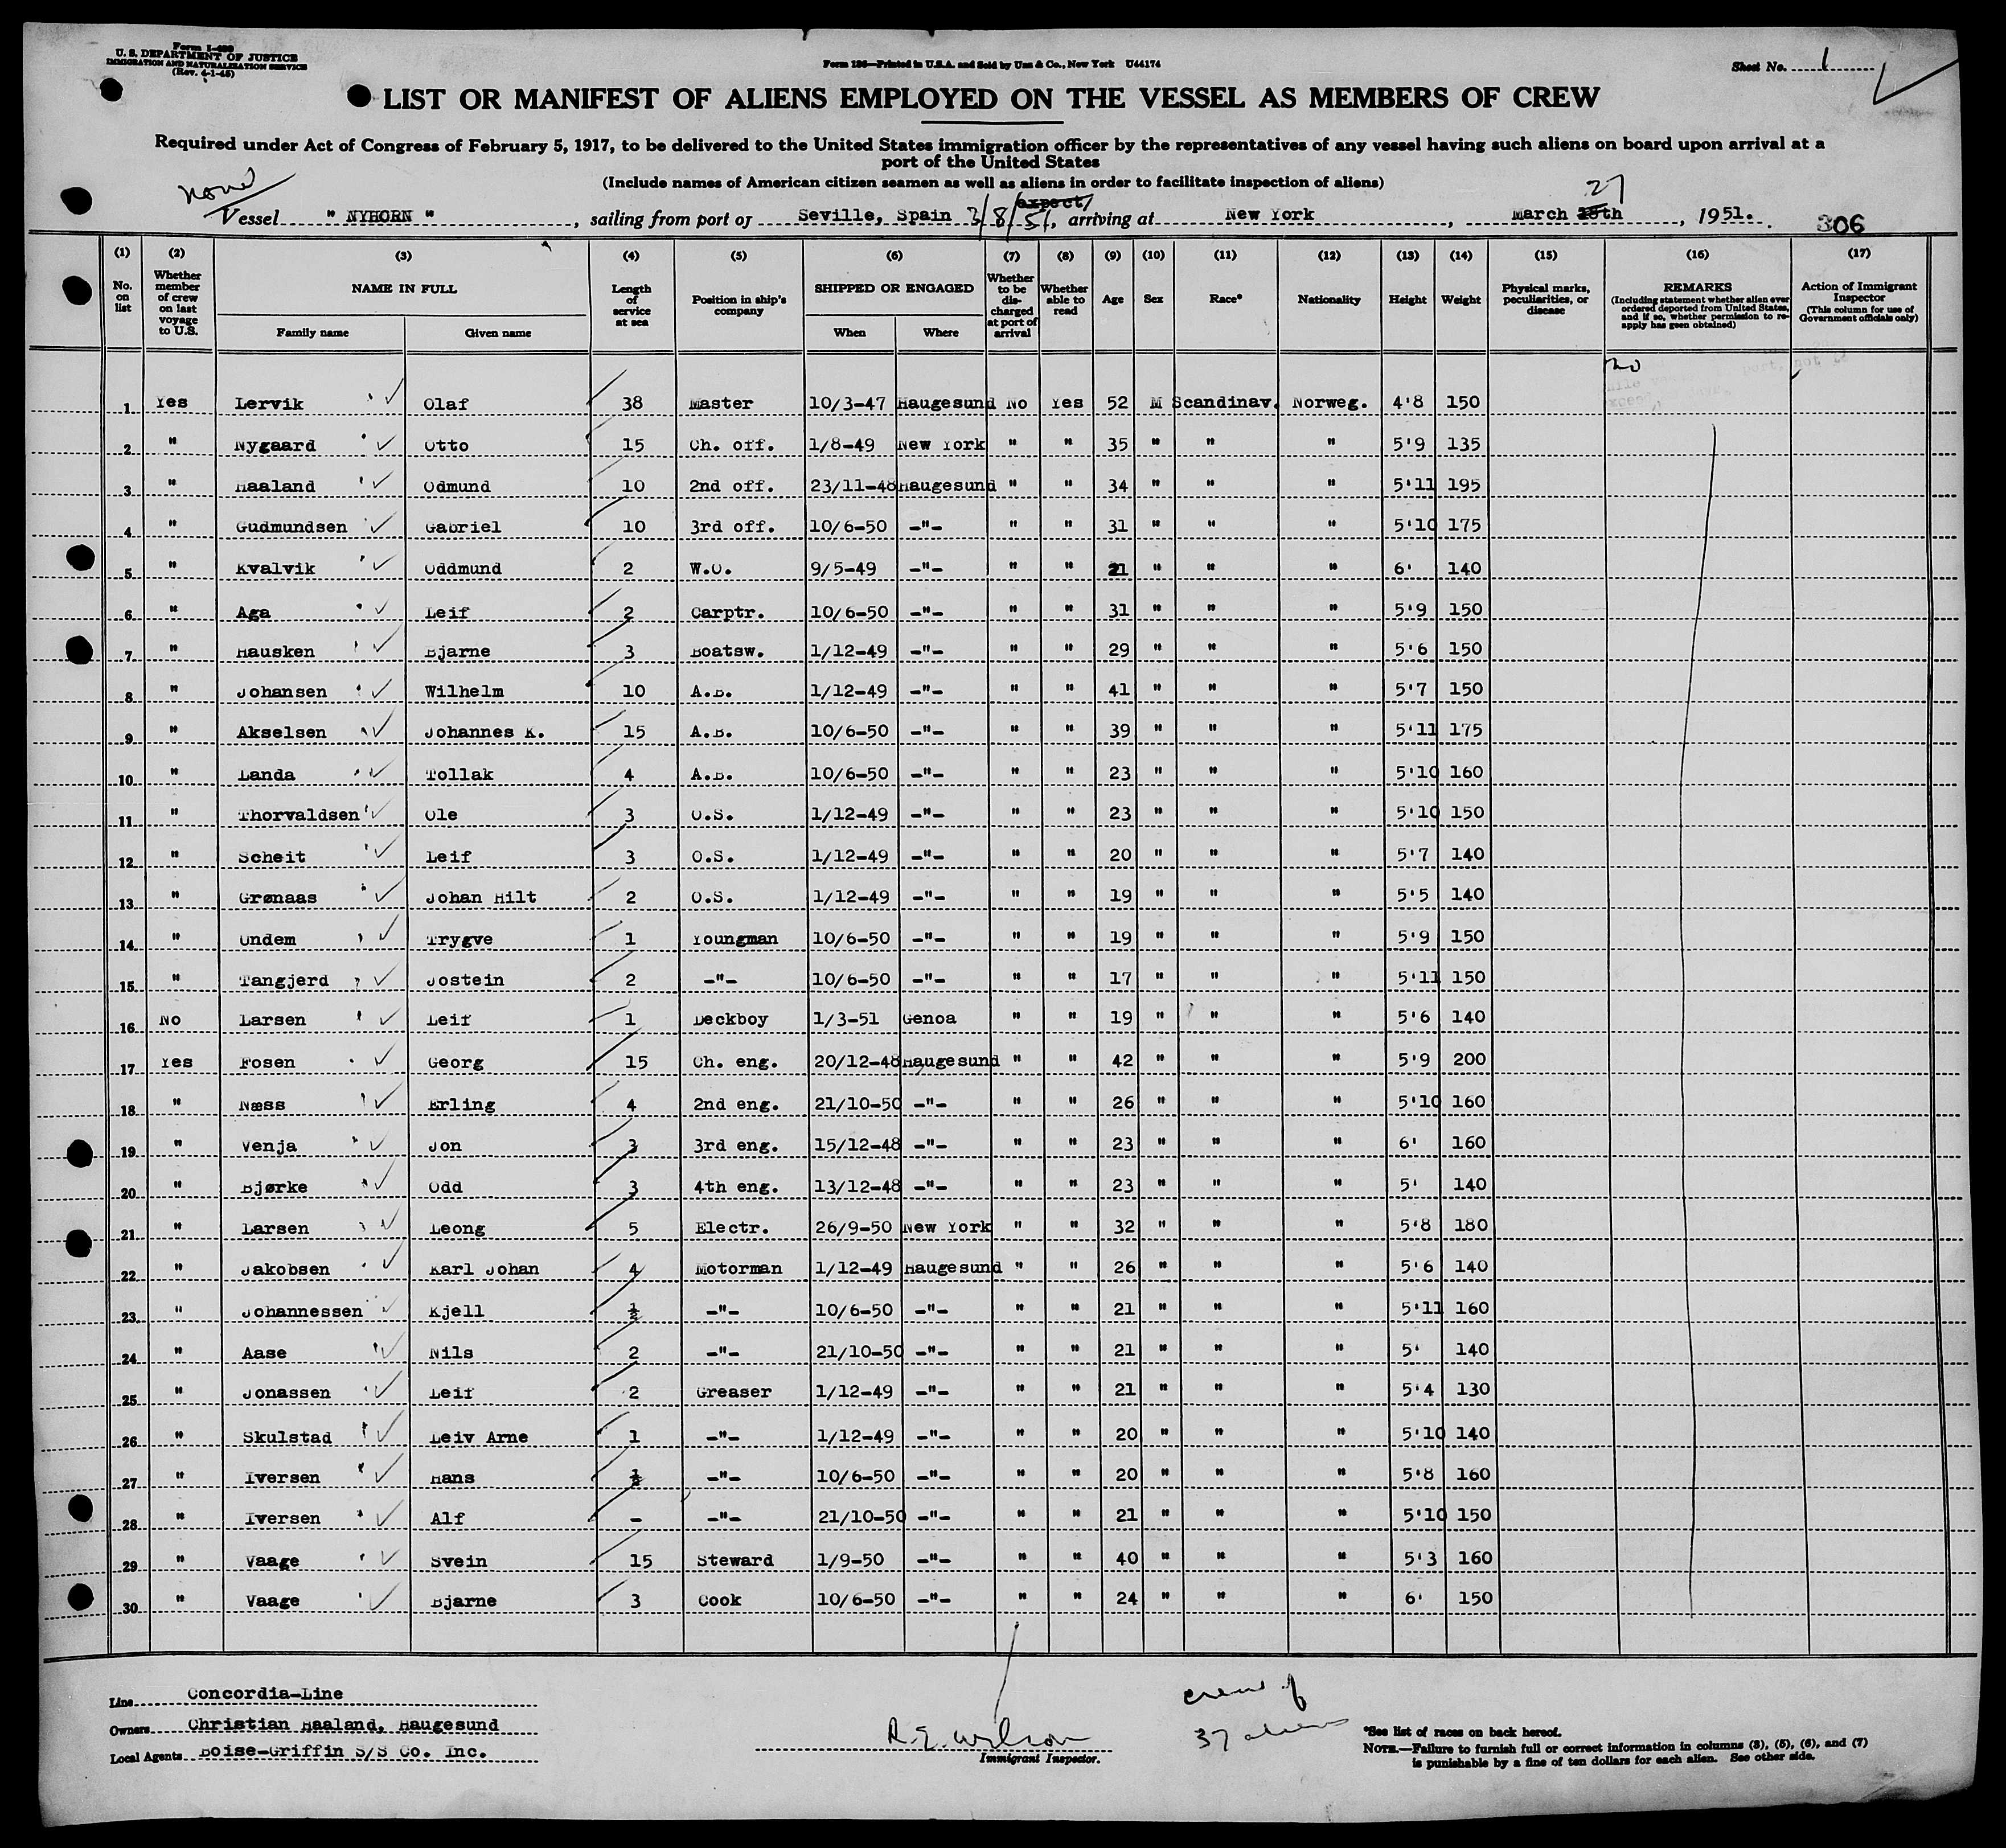 Form I-480
U. S. DEPARTMENT OF JUSTICE
IMMIGRATION AND NATURALIZATION SERVICE
(Rev. 4-1-45)
Form 186—Printed in U.S.A. and Sold by Unz & Co., New York U44174
Sheet No. 1
LIST OR MANIFEST OF ALIENS EMPLOYED ON THE VESSEL AS MEMBERS OF CREW
Required under Act of Congress of February 5, 1917, to be delivered to the United States immigration officer by the representatives of any vessel having such aliens on board upon arrival at a
port of the United States
(Include names of American citizen seamen as well as aliens in order to facilitate inspection of aliens)
none
expect 27
Vessel " NYHORN " , sailing from port of Seville, Spain 3/8/51, arriving at New York , March th , 1951. 306
(1) (2) (3) (4) (5) (6) (7) (8) (9) (10) (11) (12) (13) (14) (15) (16) (17)
No. on list
Whether member of crew on last voyage to U.S.
NAME IN FULL
Family name
Given name
Length of service at sea
Position in ship's company
SHIPPED OR ENGAGED
When
Where
Whether to be discharged at port of arrival
Whether able to read
Age
Sex
Race*
Nationality
Height
Weight
Physical marks, peculiarities, or disease
REMARKS
(Including statement whether alien ever ordered deported from United States, and if so, whether permission to re-apply has geen obtained)
Action of Immigrant Inspector
(This column for use of Government officials only)
no
1 Yes Lervik Olaf 38 Master 10/3-47 Haugesund No Yes 52 M Scandinav. Norweg. 4'8 150
2 " Nygaard Otto 15 Ch. off. 1/8-49 New York " " 35 " " " 5'9 135
3 " Haaland Odmund 10 2nd off. 23/11-48 Haugesund " " 34 " " " 5'11 195
4 " Gudmundsen Gabriel 10 3rd off. 10/6-50 -"- " " 31 " " " 5'10 175
5 " Kvalvik Oddmund 2 W.O. 9/5-49 -"- " " 21 " " " 6' 140
6 " Aga Leif 2 Carptr. 10/6-50 -"- " " 31 " " " 5'9 150
7 " Hausken Bjarne 3 Boatsw. 1/12-49 -"- " " 29 " " " 5'6 150
8 " Johansen Wilhelm 10 A.B. 1/12-49 -"- " " 41 " " " 5'7 150
9 " Akselsen Johannes K. 15 A.B. 10/6-50 -"- " " 39 " " " 5'11 175
10 " Landa Tollak 4 A.B. 10/6-50 -"- " " 23 " " " 5'10 160
11 " Thorvaldsen Ole 3 O.S. 1/12-49 -"- " " 23 " " " 5'10 150
12 " Scheit Leif 3 O.S. 1/12-49 -"- " " 20 " " " 5'7 140
13 " Grønaas Johan Hilt 2 O.S. 1/12-49 -"- " " 19 " " " 5'5 140
14 " Undem Trygve 1 Youngman 10/6-50 -"- " " 19 " " " 5'9 150
15 " Tangjerd Jostein 2 -"- 10/6-50 -"- " " 17 " " " 5'11 150
16 No Larsen Leif 1 Deckboy 1/3-51 Genoa " " 19 " " " 5'6 140
17 Yes Fosen Georg 15 Ch. eng. 20/12-48 Haugesund " " 42 " " " 5'9 200
18 " Næss Erling 4 2nd eng. 21/10-50 -"- " " 26 " " " 5'10 160
19 " Venja Jon 3 3rd eng. 15/12-48 -"- " " 23 " " " 6' 160
20 " Bjørke Odd 3 4th eng. 13/12-48 -"- " " 23 " " " 5' 140
21 " Larsen Leong 5 Electr. 26/9-50 New York " " 32 " " " 5'8 180
22 " Jakobsen Karl Johan 4 Motorman 1/12-49 Haugesund " " 26 " " " 5'6 140
23 " Johannessen Kjell ½ -"- 10/6-50 -"- " " 21 " " " 5'11 160
24 " Aase Nils 2 -"- 21/10-50 -"- " " 21 " " " 5' 140
25 " Jonassen Leif 2 Greaser 1/12-49 -"- " " 21 " " " 5'4 130
26 " Skulstad Leiv Arne 1 -"- 1/12-49 -"- " " 20 " " " 5'10 140
27 " Iversen Hans ½ -"- 10/6-50 -"- " " 20 " " " 5'8 160
28 " Iversen Alf - -"- 21/10-50 -"- " " 21 " " " 5'10 150
29 " Vaage Svein 15 Steward 1/9-50 -"- " " 40 " " " 5'3 160
30 " Vaage Bjarne 3 Cook 10/6-50 -"- " " 24 " " " 6' 150
Line Concordia-Line
Owners Christian Haaland, Haugesund
Local Agents Boise-Griffin S/S Co. Inc.
R.E. Wilson
Immigrant Inspector.
crew of
37 aliens
*See list of races on back hereof.
NOTE.—Failure to furnish full or correct information in columns (3), (5), (6), and (7)
is punishable by a fine of ten dollars for each alien. See other side.